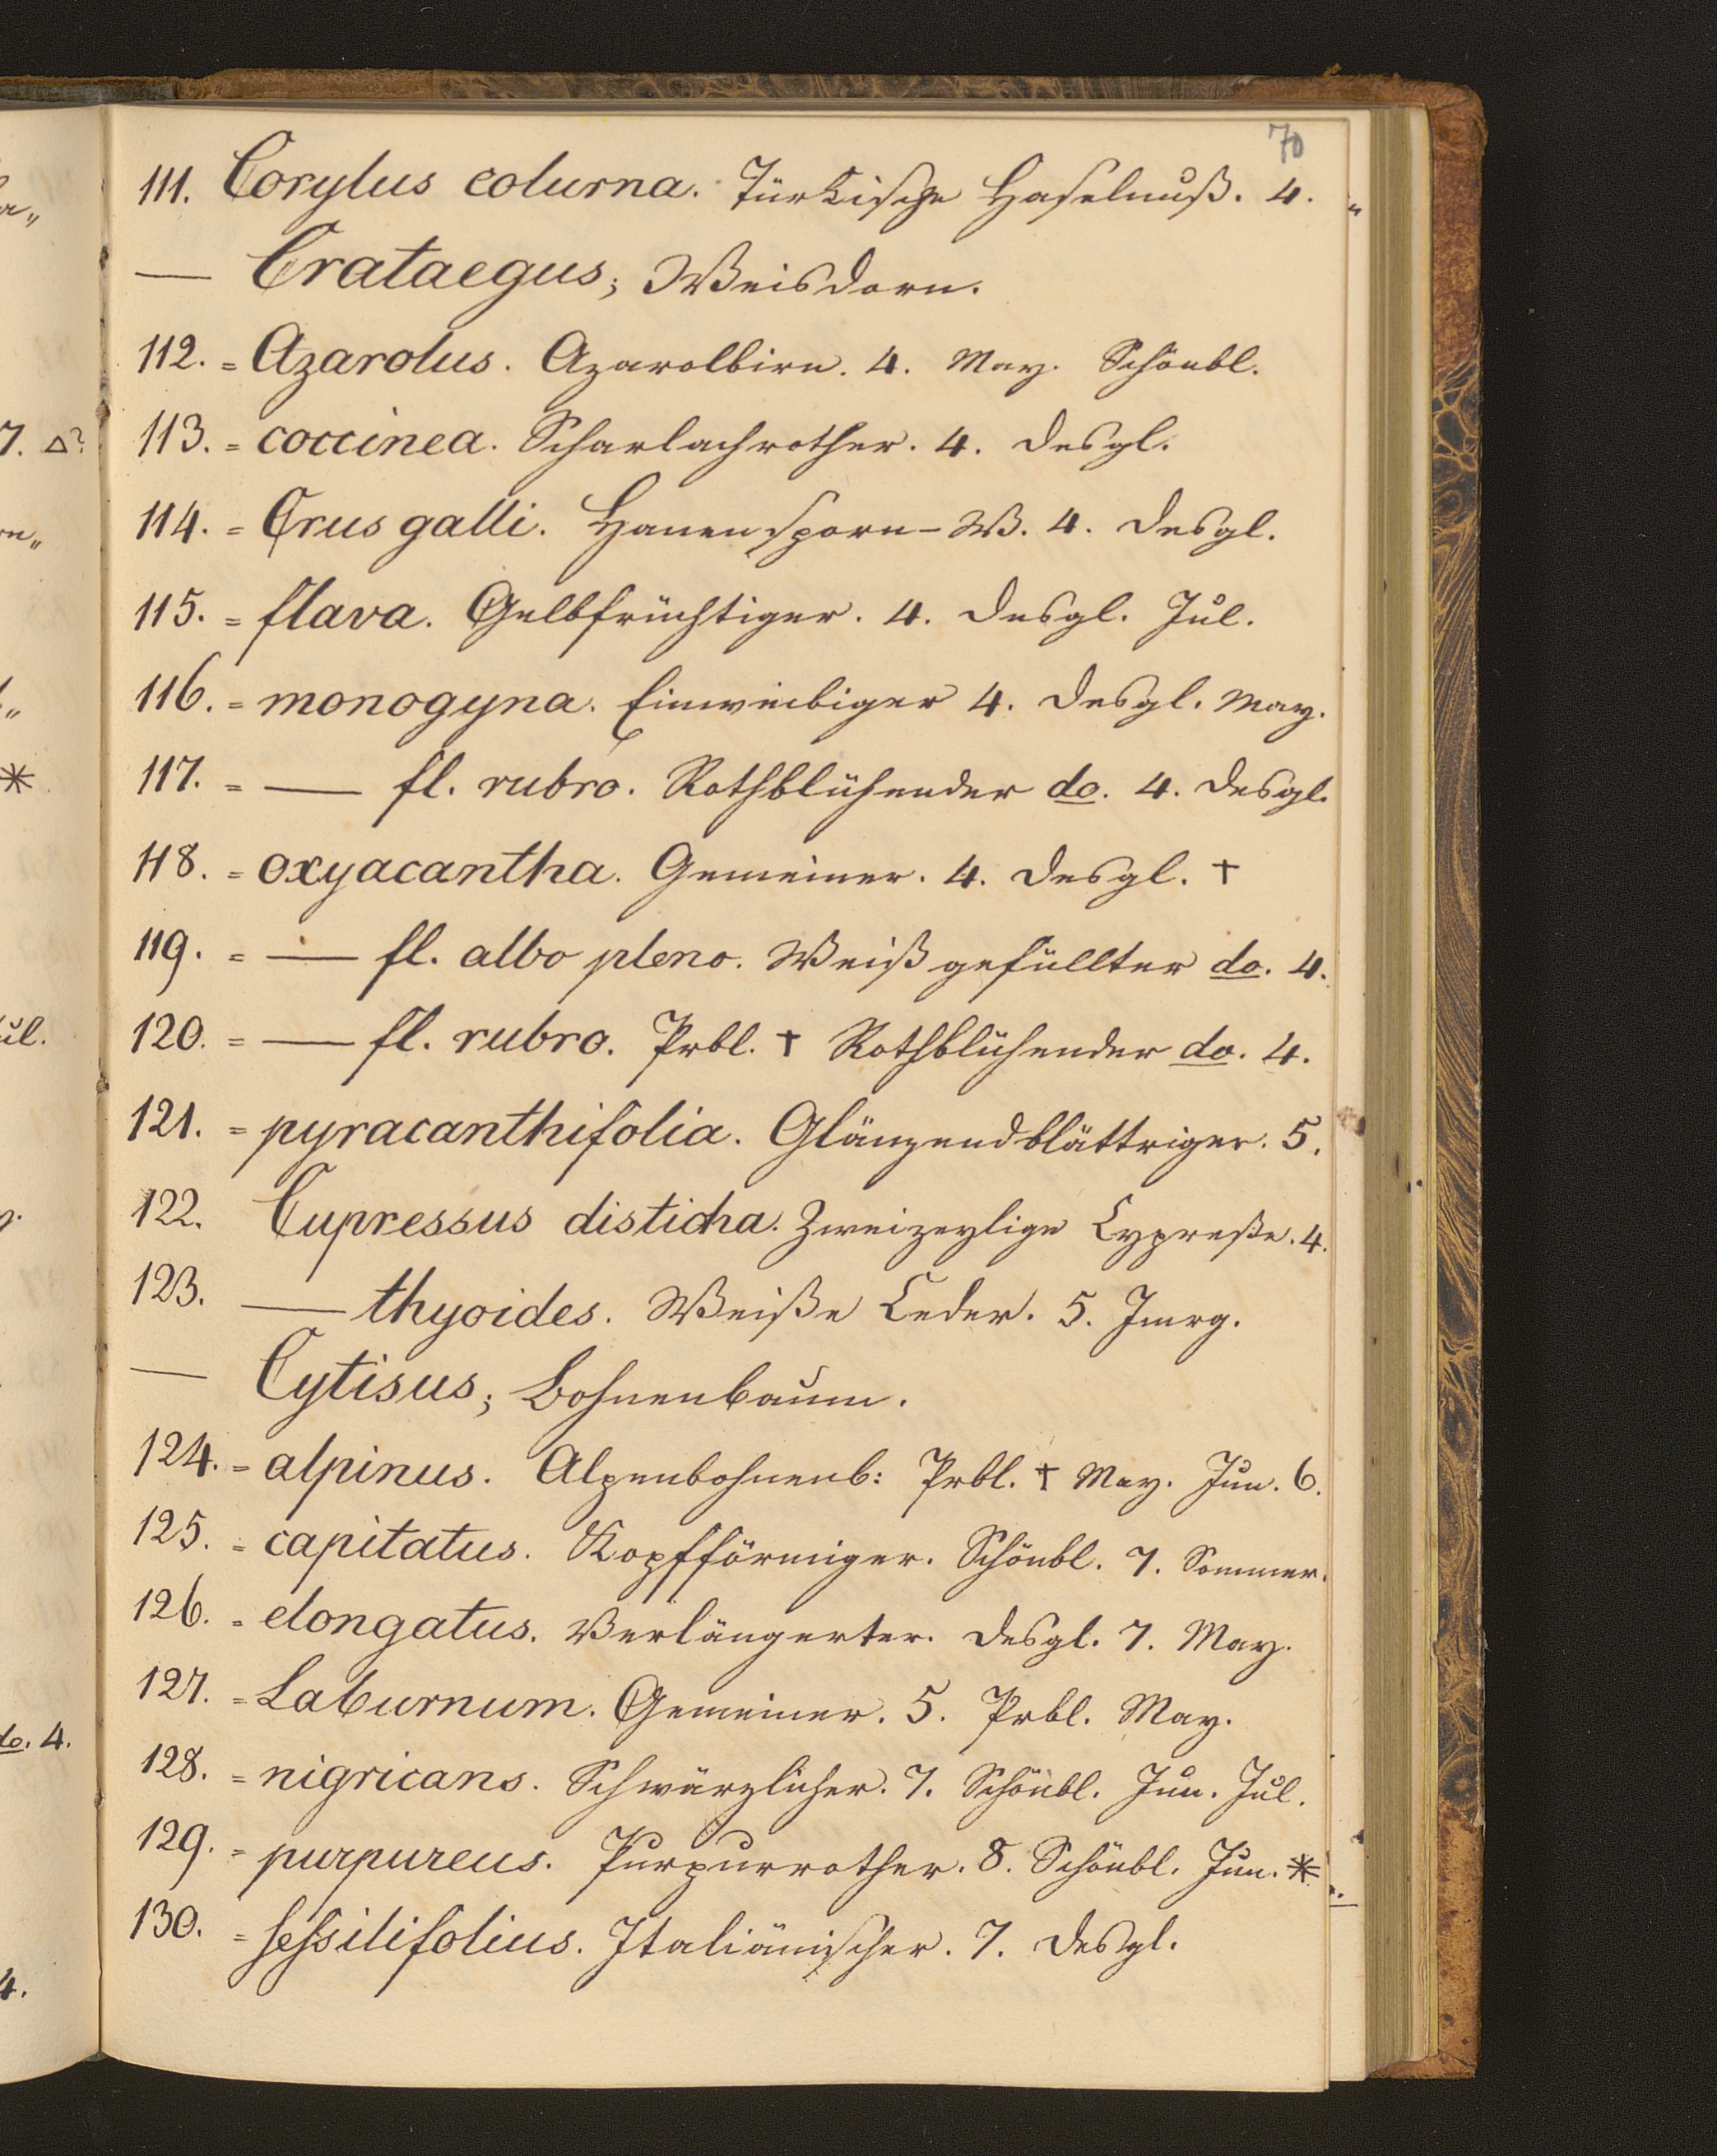 70
111. Corylus colurna. Türkische Haselnuß. 4.
— Crataegus; Weisdorn.
112. = Azarolus. Azarolbirn. 4. May. Schönbl.
113. = coccinea. Scharlachrother. 4. desgl.
114. = Crus galli. Hanensporn-W. 4. desgl.
115. = flava. Gelbfrüchtiger. 4. desgl. Jul.
116. = monogyna. Einweibiger 4. desgl. May.
117. = — fl. rubro. Rothblühender do. 4. desgl.
118. = oxyacantha. Gemeiner. 4. desgl. †
119. = — fl. albo pleno. Weiß gefüllter do. 4.
120. = — fl. rubro. Prbl. † Rothblühender do. 4.
121. = pyracanthifolia. Glänzendblättriger. 5.
122. Cupressus disticha. Zweizeylige Cypreße. 4.
123. — thyoides. Weiße Ceder. 5. Jmrg.
— Cytisus; Bohnenbaum.
124. = alpinus. Alpenbohnenb: Prbl. † May. Jun. 6.
125. = capitatus. Kopfförmiger. Schönbl. 7. Sommer.
126. = elongatus. Verlängerter. desgl. 7. May.
127. = Laburnum. Gemeiner. 5. Prbl. May.
128. = nigricans. Schwärzlicher. 7. Schönbl. Jun. Jul.
129. = purpureus. Purpurrother. 8. Schönbl. Jun. *
130. = seßsilifolius. Italiänischer. 7. desgl.